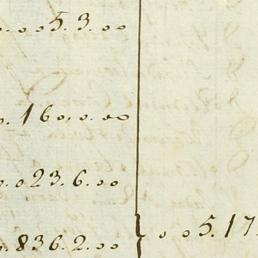 ..053.00
.160.0.00
.023.6.00
.836.2.00
0 05.17.